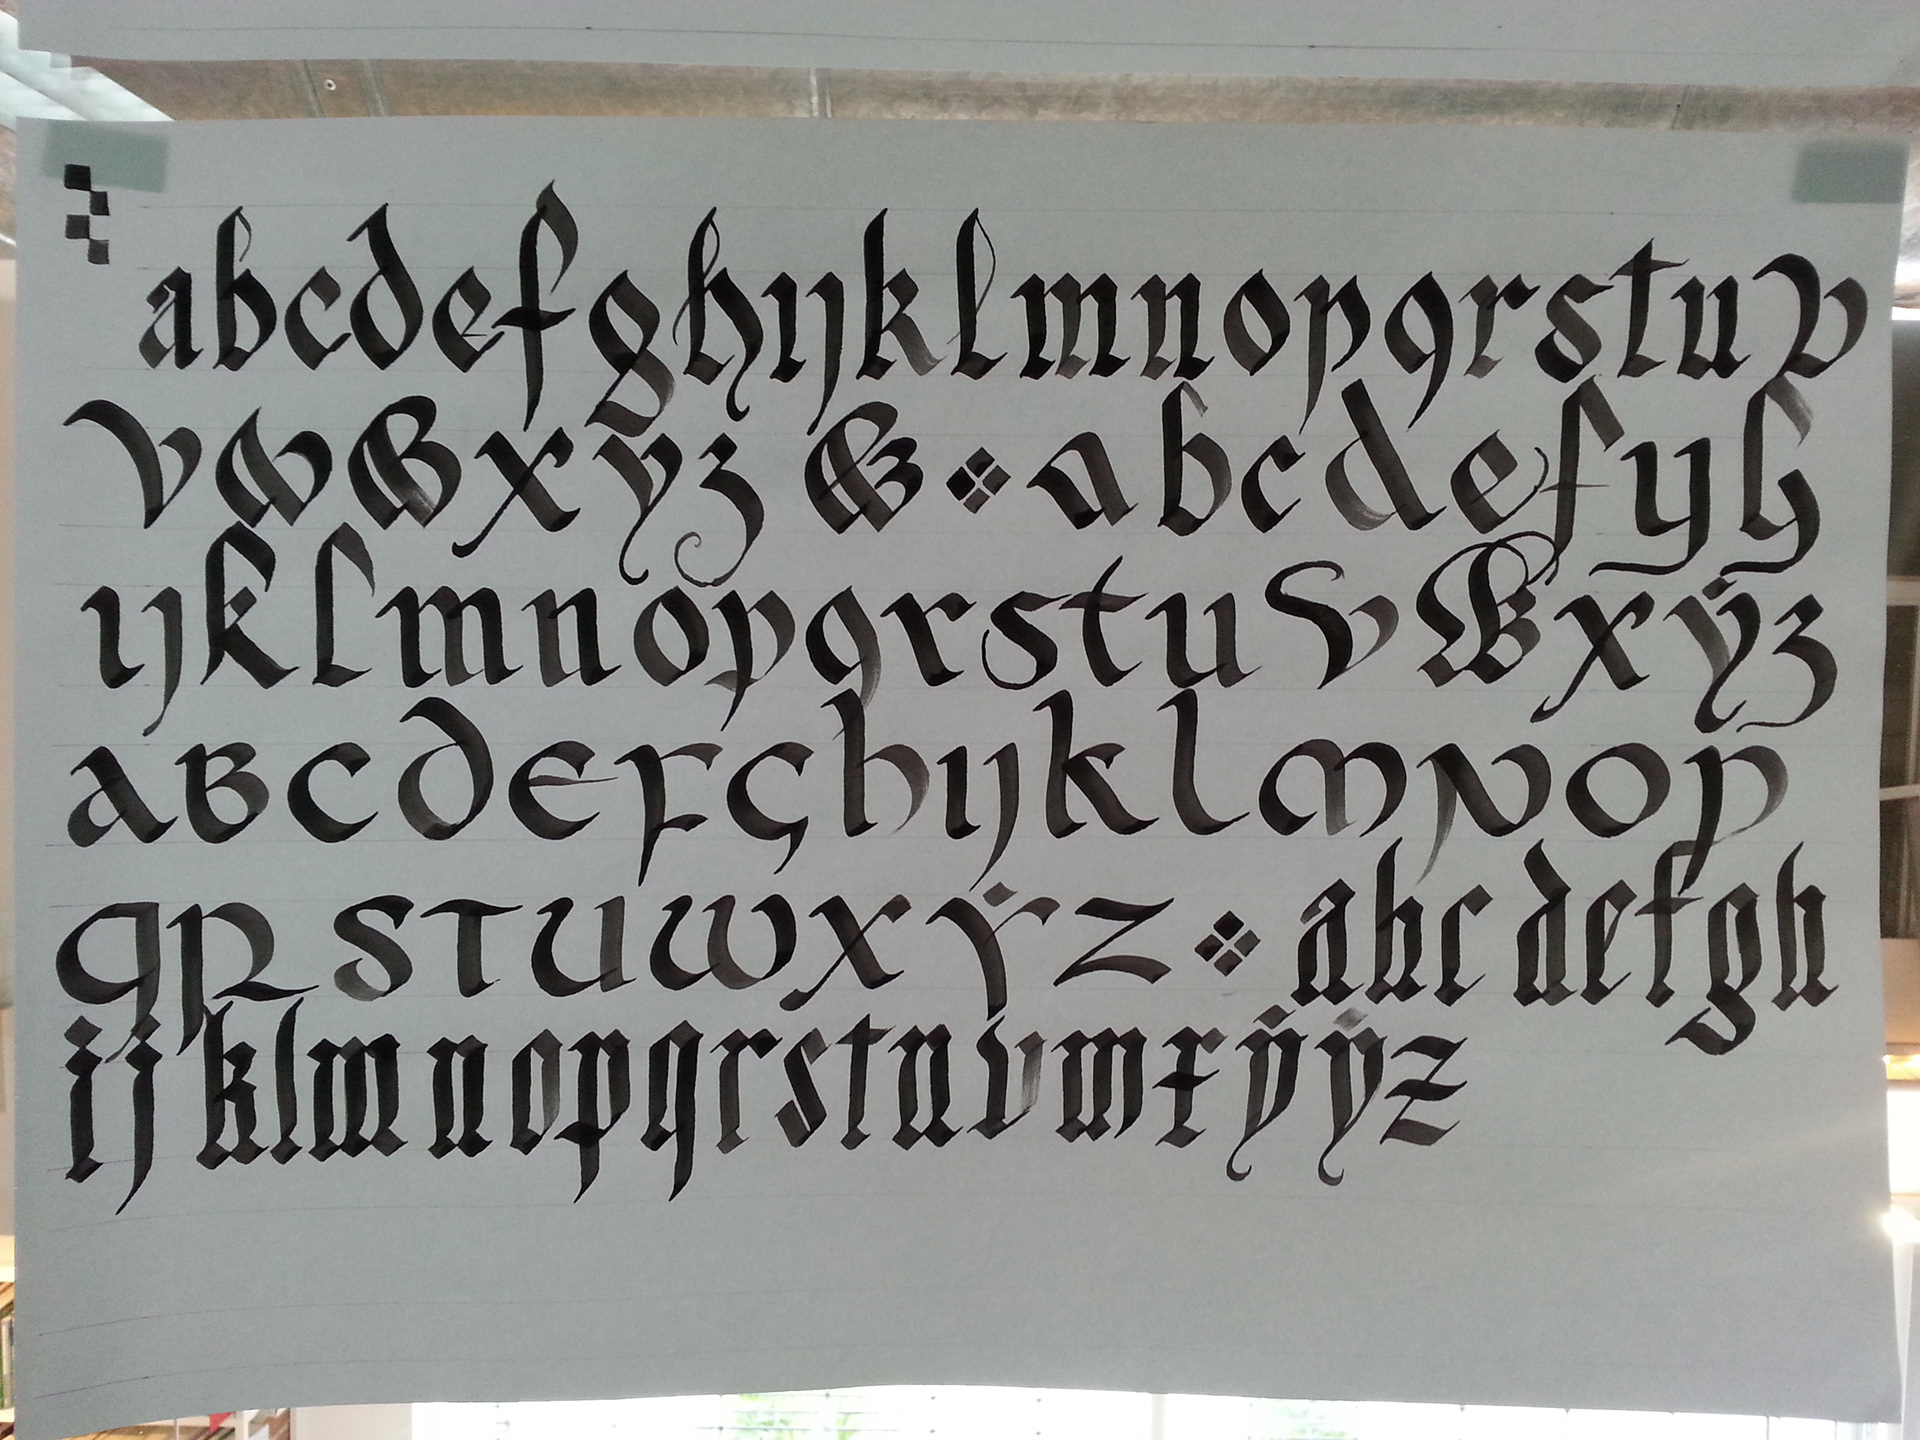 abcdefghijklmnopqrstuv
vwwxyz & ❖ abcdefgh
ijklmnopqrstuvwxÿz
abcdefghijklmnop
qrstuwxÿz ❖ abcdefgh
ijklmnopqrstuvwxÿÿz